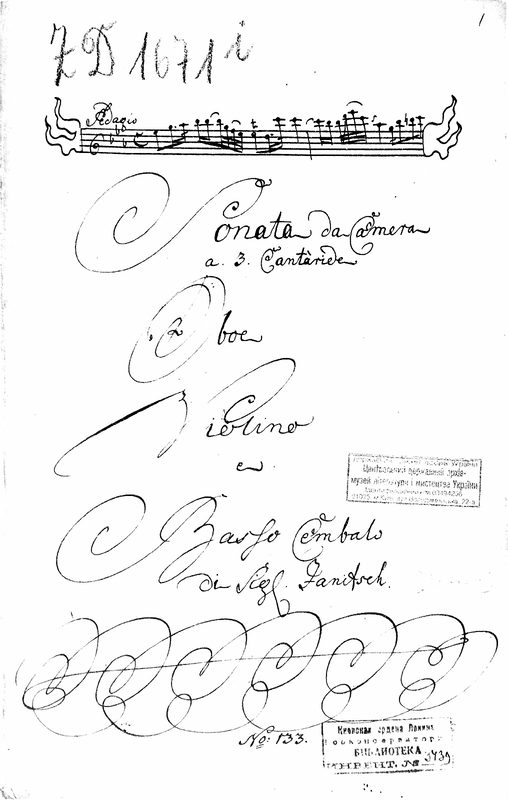 1
ZD 1671 i
Adagio
Sonata da Camera
a. 3. Cantàride
Oboe
Violino
e
Basso Cembalo
di Sigl. Janitsch.
No: 133.
Центральний державний архів-
музей літератури і мистецтва України
Киевская ордена Ленина
Госконсерватория
БИБЛИОТЕКА
ИНВЕНТ. № 3739